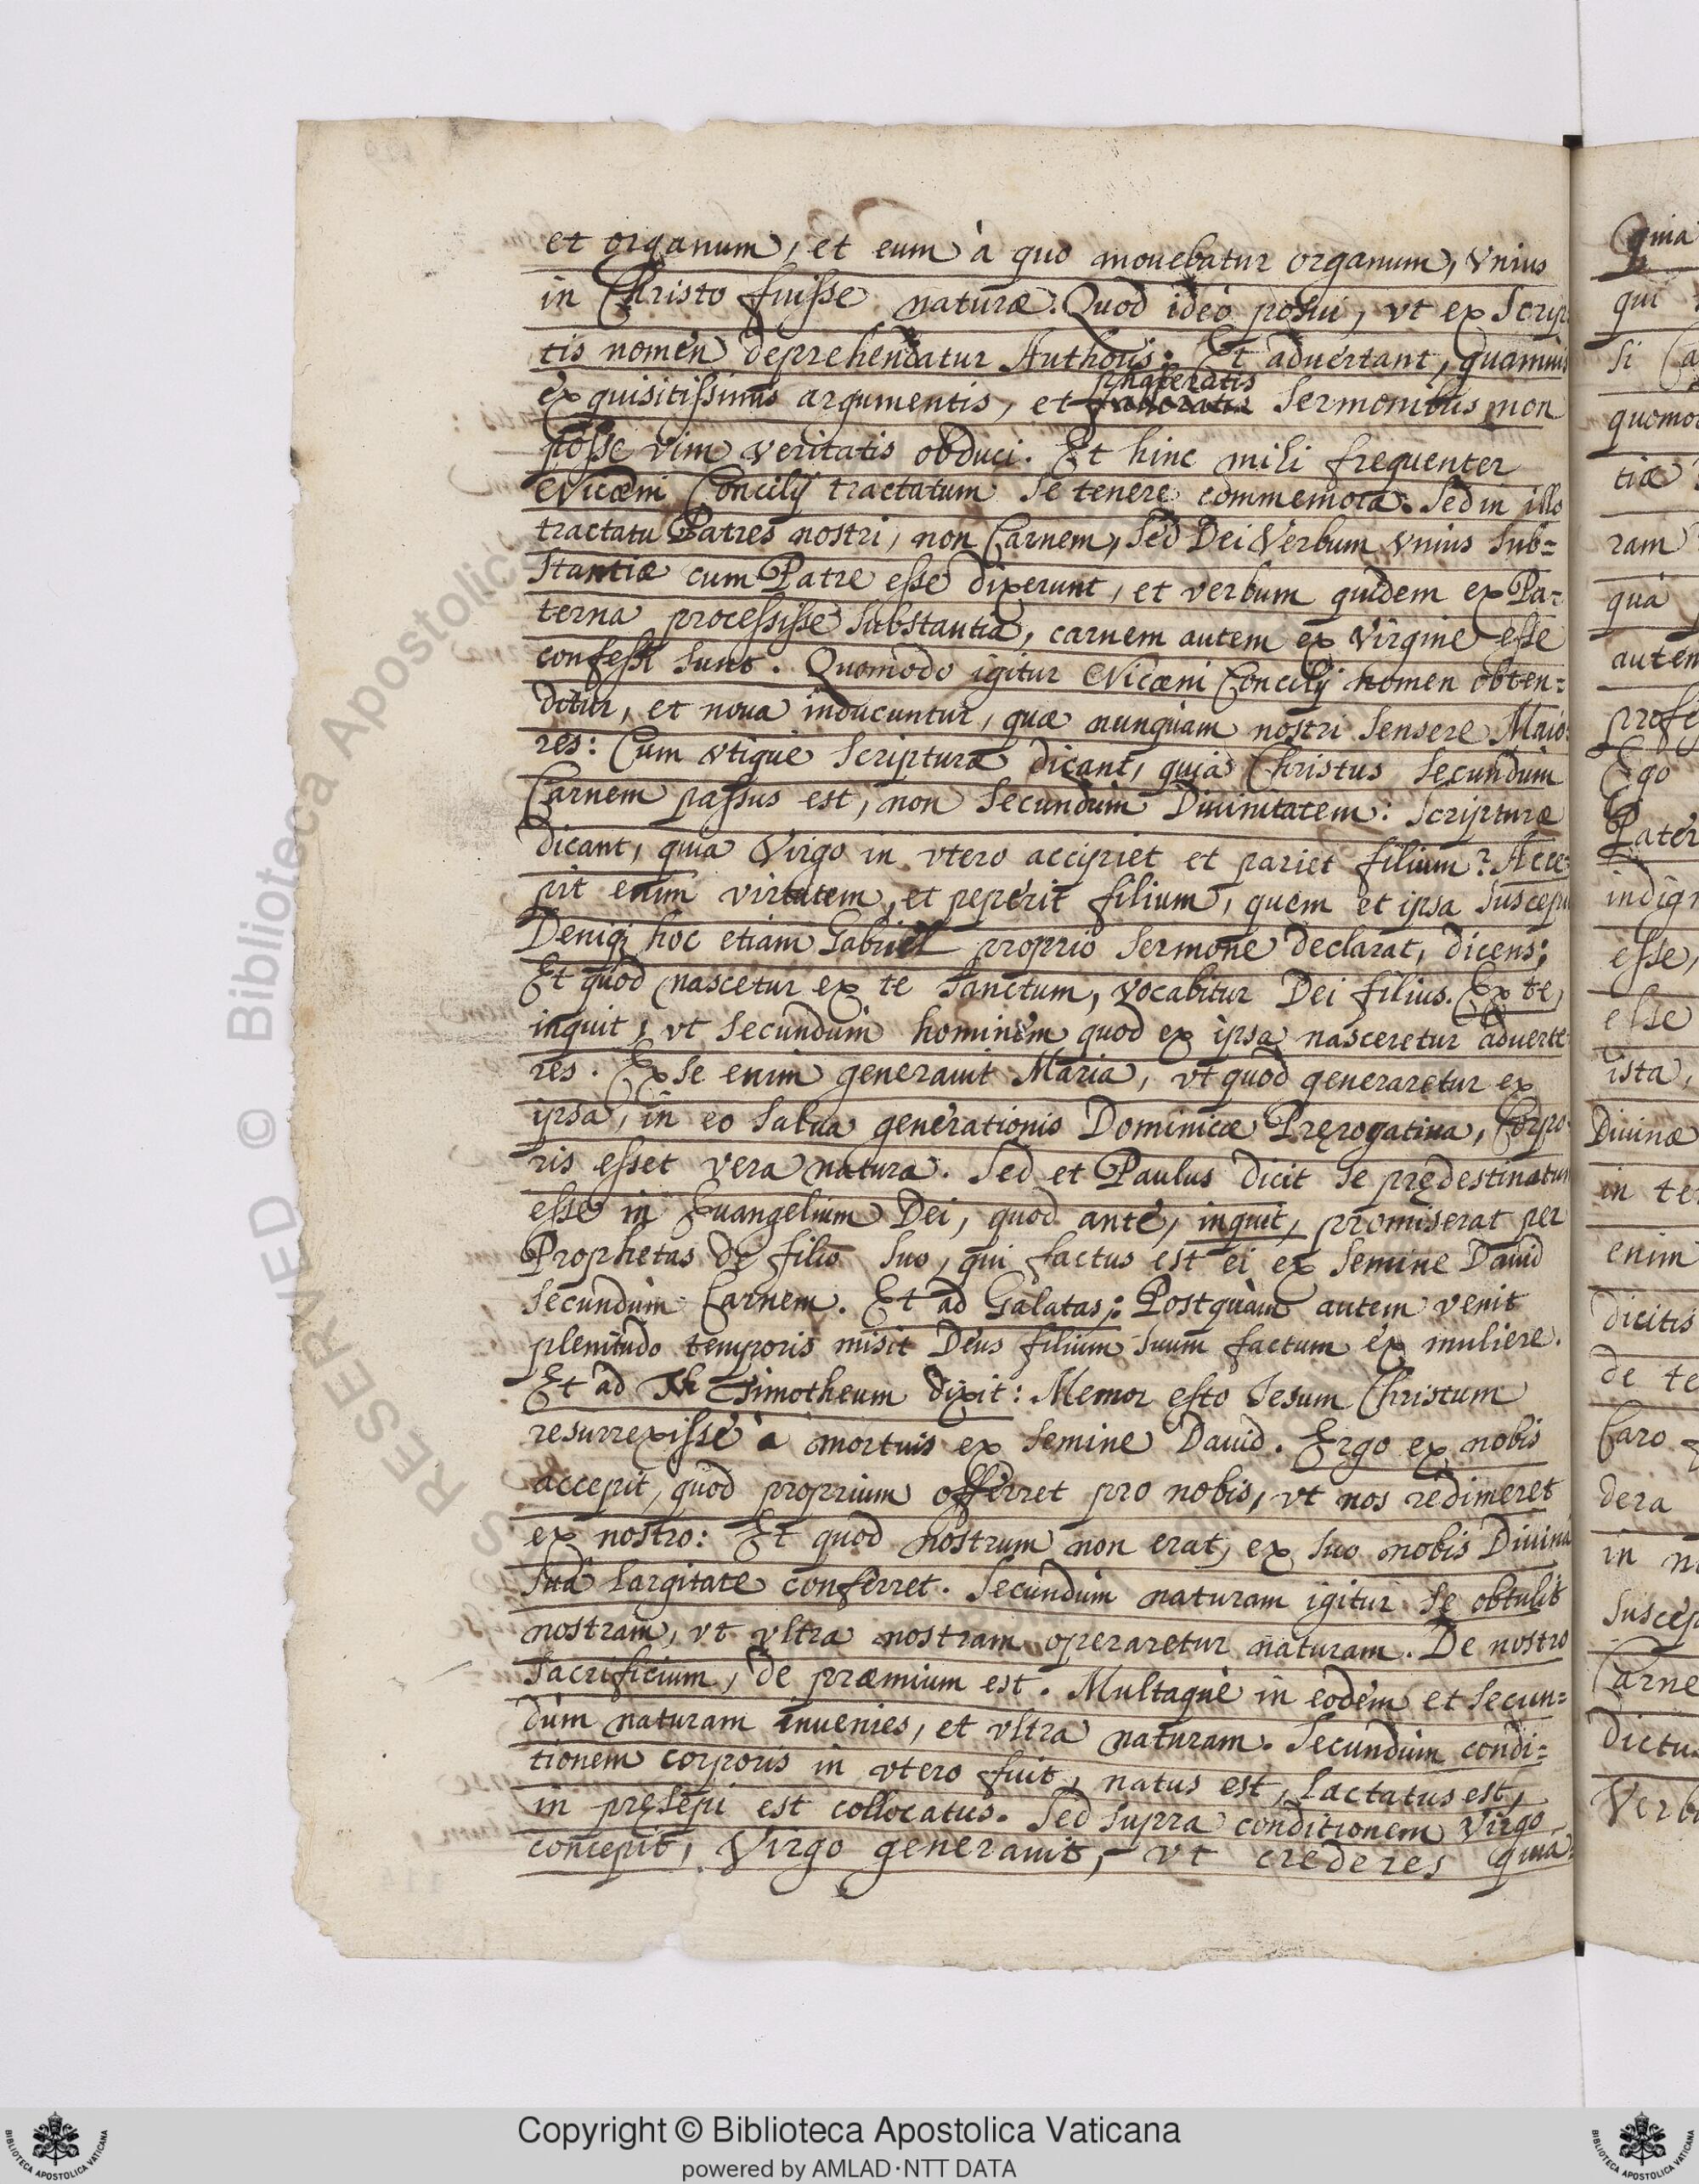 et organum, et eum à quo mouebatur organum, vnius
in Christo fuisse naturæ. Quod ideò posui, vt ex Scrip
tis nomen deprehendatur Authoris. Et aduertant, quamuis
exquisitissimis argumentis, et phaleratis sermonibus non
posse vim veritatis obduci. Et hinc mihi frequenter
Nicæni Concilij tractatum se tenere commemorat. Sed in illo
tractatu Patres nostri, non Carnem, sed Dei Verbum vnius sub=
stantiæ cum Patre esse dixerunt, et verbum quidem ex Pa=
terna processisse substantia, carnem autem ex Virgine esse
confessi sunt. Quomodo igitur Nicæni Concilij nomen obten=
ditur, et noua inducuntur, quæ nunquam nostri sensere Maio=
res: Cum vtique Scripturæ dicant, quia Christus secundum
Carnem passus est, non secundum Diuinitatem: Scripturæ
dicant, quia Virgo in vtero accipiet et pariet filium? Acce=
pit enim virtutem, et peperit filium, quem et ipsa suscepit
Deniq; hoc etiam Gabriel proprio sermone declarat, dicens;
Et quod nascetur ex te sanctum, vocabitur Dei filius. Ex te,
inquit, vt secundum hominem quod ex ipsa nasceretur aduerte=
res. Ex se enim generauit Maria, vt quod generaretur ex
ipsa, in eo salua generationis Dominicæ Pręrogatiua, Corpo=
ris esset vera natura. Sed et Paulus dicit se prędestinatum
esse in Euangelium Dei, quod ante, inquit, promiserat per
Prophetas de filio suo, qui factus est ei ex semine Dauid
secundùm Carnem. Et ad Galatas: Postquàm autem venit
plenitudo temporis misit Deus filium suum factum ex muliere.
Et ad Timotheum dixit: Memor esto Iesum Christum
resurrexisse à mortuis ex semine Dauid. Ergo ex nobis
accepit, quod proprium offerret pro nobis, vt nos redimeret
ex nostro: Et quod nostrum non erat, ex suo nobis Diuina
sua largitate conferret. Secundum naturam igitur se obtulit
nostram, vt vltra nostram operaretur naturam. De nostro
sacrificium, de præmium est. Multaque in eodem et secun=
dum naturam inuenies, et vltra naturam. Secundum condi=
tionem corporis in vtero fuit, natus est, lactatus est,
in pręsepi est collocatus. Sed supra conditionem Virgo
concepit, Virgo generauit, vt crederes quia
Quia
qui
si
quomo
tiæ
ram
qua
autem
profe
Ego
Pater
indign
esse,
esse
ista,
Diuinæ
in te
enim
dicitis
de te
Caro
dera
in n
suscep
Carne
dictu
Verb
RESERVED © Biblioteca Apostolica
Copyright © Biblioteca Apostolica Vaticana
powered by AMLAD·NTT DATA
BIBLIOTECA APOSTOLICA VATICANA
BIBLIOTECA APOSTOLICA VATICANA